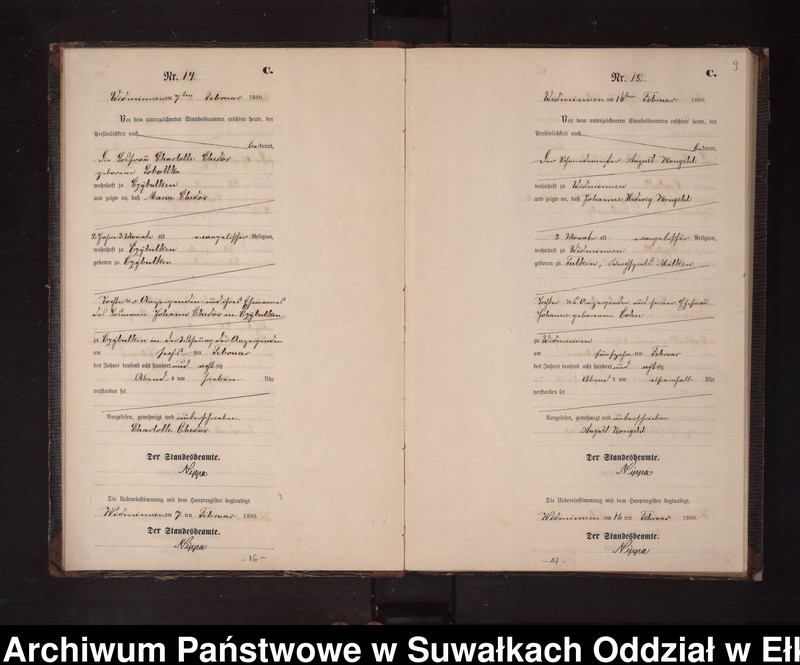 Nr. 14
C.
Widminnen am 7ten Februar 1880.
Vor dem unterzeichneten Standesbeamten erschien heute, der
Persönlichkeit nach
bekannt,
die Losfrau Charlotte Chedor
geborene Sobottka
wohnhaft zu Czybulken
und zeigte an, daß Maria Chedor
2 Jahre 3 Monate alt evangelischer Religion,
wohnhaft zu Czybulken
geboren zu Czybulken
Tochter der Anzeigenden und ihres Ehemannes
des Losmann Johann Chedor in Czybulken
zu Czybulken in der Wohnung der Anzeigenden
am sechsten Februar
des Jahres tausend acht hundert und achtzig
Abends um sieben Uhr
verstorben sei
Vorgelesen, genehmigt und unterschrieben
Charlotte Chedor
Der Standesbeamte.
Nippa
Die Uebereinstimmung mit dem Hauptregister beglaubigt.
Widminnen am 7 ten Februar 1880.
Der Standesbeamte.
Nippa
- 16 -
9
Nr. 15
C.
Widminnen am 16ten Februar 1880.
Vor dem unterzeichneten Standesbeamten erschien heute, der
Persönlichkeit nach
bekannt,
der Schmiedemeister August
wohnhaft zu Widminnen
und zeigte an, daß Johanne Hedwig
2 Monate alt evangelischer Religion,
wohnhaft zu Widminnen
geboren zu Kirchspiels Milken
Tochter des Anzeigenden und seiner Ehefrau
Johanne geborenen
zu Widminnen
am fünfzehn ten Februar
des Jahres tausend acht hundert und achtzig
Abends um elfeinhalb Uhr
verstorben sei
Vorgelesen, genehmigt und unterschrieben
August
Der Standesbeamte.
Nippa
Die Uebereinstimmung mit dem Hauptregister beglaubigt.
Widminnen am 16 ten Februar 1880.
Der Standesbeamte.
Nippa
- 17 -
Archiwum Państwowe w Suwałkach Oddział w Ełk